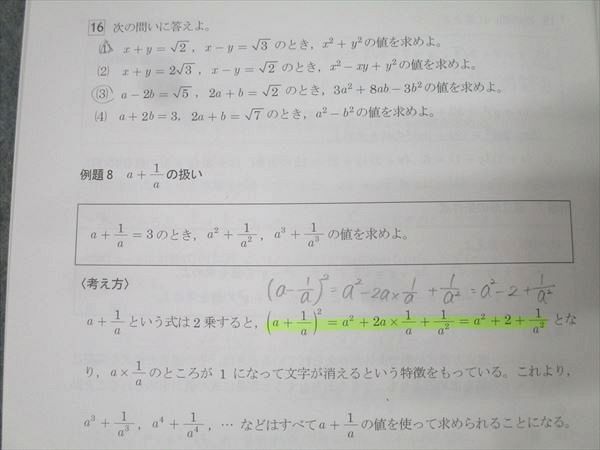 16 次の問いに答えよ。
(1) x + y = √2 , x − y = √3 のとき, x² + y² の値を求めよ。
(2) x + y = 2√3 , x − y = √2 のとき, x² − xy + y² の値を求めよ。
(3) a − 2b = √5 , 2a + b = √2 のとき, 3a² + 8ab − 3b² の値を求めよ。
(4) a + 2b = 3, 2a + b = √7 のとき, a² − b² の値を求めよ。
例題8 a + 1/a の扱い
a + 1/a = 3 のとき, a² + 1/a² , a³ + 1/a³ の値を求めよ。
〈考え方〉 (a − 1/a)² = a² − 2a × 1/a + 1/a² = a² − 2 + 1/a²
a + 1/a という式は2乗すると, (a + 1/a)² = a² + 2a × 1/a + 1/a² = a² + 2 + 1/a² とな
り, a × 1/a のところが 1 になって文字が消えるという特徴をもっている。これより,
a³ + 1/a³ , a⁴ + 1/a⁴ , … などはすべて a + 1/a の値を使って求められることになる。